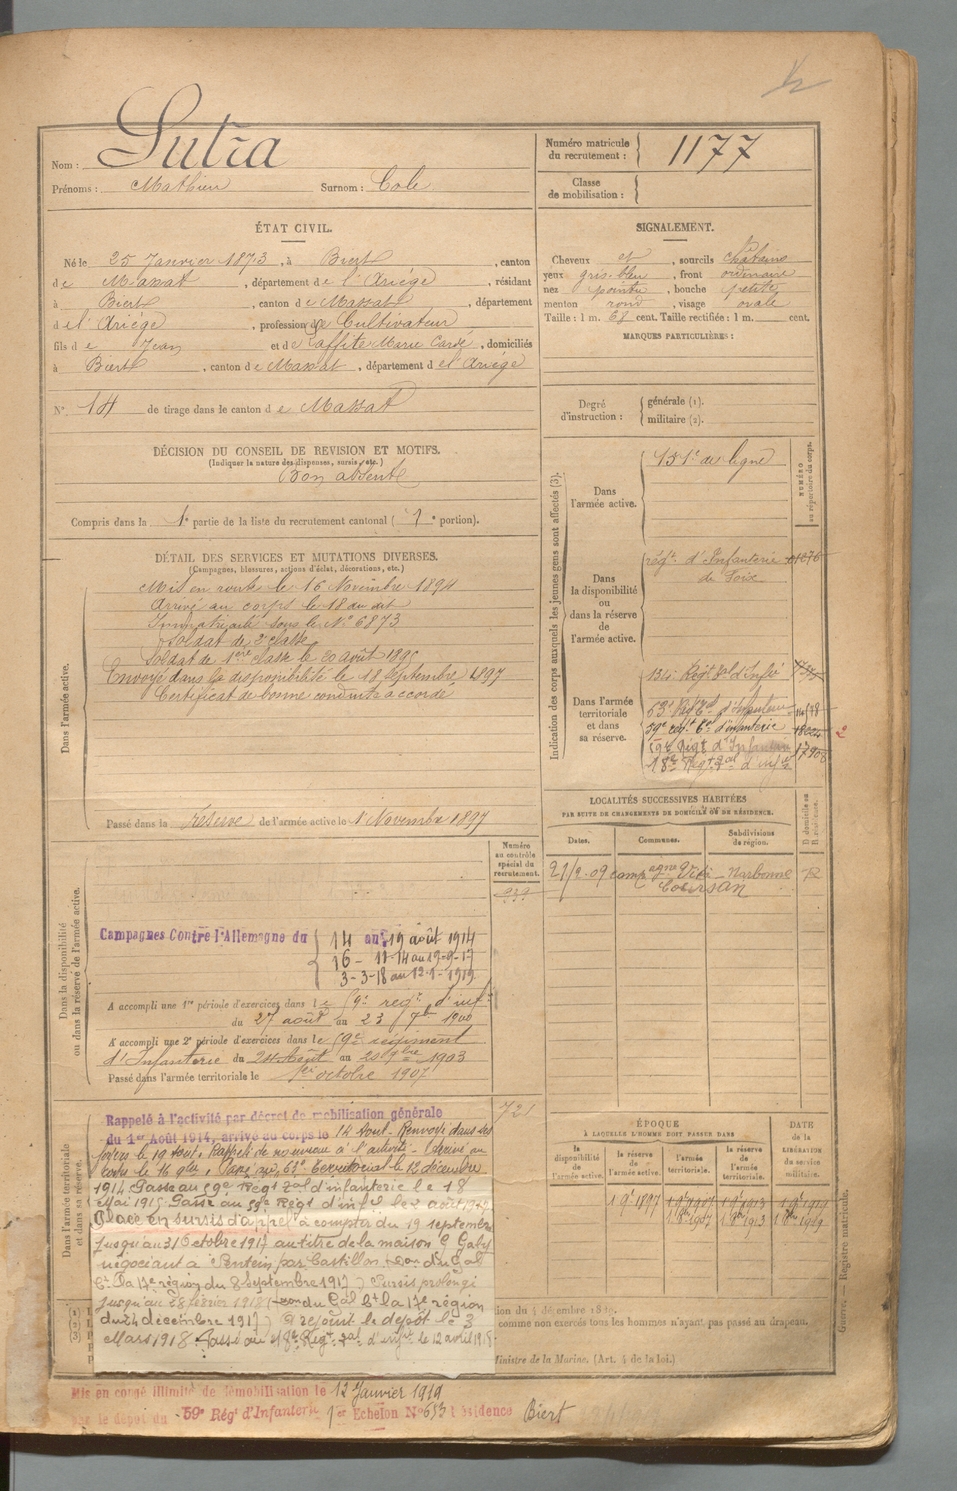 Nom : Sutra
Prénoms : Mathieu Surnom : Cole
Numéro matricule du recrutement : 1177
Classe de mobilisation :
ÉTAT CIVIL.
Né le 25 Janvier 1873, à Biert, canton
de Massat, département de l'Ariége, résidant
à Biert, canton de Massat, département
de l'Ariége, profession de Cultivateur
fils de Jean et de Laffite Marie Carde, domiciliés
à Biert, canton de Massat, département de l'Ariége
N° 14 de tirage dans le canton de Massat
SIGNALEMENT.
Cheveux et, sourcils châtains
yeux gris-bleu, front ordinaire
nez pointu, bouche petite,
menton rond, visage ovale
Taille : 1 m. 68 cent. Taille rectifiée : 1 m. cent.
MARQUES PARTICULIÈRES :
Degré d'instruction : générale (1).
militaire (2).
DÉCISION DU CONSEIL DE REVISION ET MOTIFS.
(Indiquer la nature des dispenses, sursis, etc.)
Bon absent
Compris dans la 1e partie de la liste du recrutement cantonal (1e portion).
DÉTAIL DES SERVICES ET MUTATIONS DIVERSES.
(Campagnes, blessures, actions d'éclat, décorations, etc.)
Dans l'armée active.
Mis en route le 16 Novembre 1894
Arrivé au corps le 18 du dit
Immatriculé sous le N° 6873
Soldat de 2e classe
Soldat de 1ere classe le 30 août 1895
Envoyé dans la disponibilité le 18 Septembre 1897
Certificat de bonne conduite accordé
Passé dans la réserve de l'armée active le 1 Novembre 1897
Indication des corps auxquels les jeunes gens sont affectés (3).
NUMÉRO au répertoire du corps.
Dans l'armée active.
151e de ligne
Dans la disponibilité ou dans la réserve de l'armée active.
régt d'Infanterie
de Foix
Dans l'armée territoriale et dans sa réserve.
134e Régt Tal d'Infie
63e Régt Tal d'infanterie
59e régt d'infanterie 2
59e Régt d'Infanterie
18e Régt Tal d'infie
LOCALITÉS SUCCESSIVES HABITÉES
PAR SUITE DE CHANGEMENTS DE DOMICILE OU DE RÉSIDENCE.
Dates. Communes. Subdivisions de région. D. domicile ou R. résidence.
21/2-09 Narbonne
Coursan
Dans la disponibilité ou dans la réserve de l'armée active.
Numéro au contrôle spécial du recrutement.
939
Campagnes Contre l'Allemagne du 14 au 19 août 1914
16-11-14 au 19-9-17
3-3-18 au 12-1-1919
A accompli une 1re période d'exercices dans le 59e régt d'inf
du 27 août au 23 7bre 1900
A accompli une 2e période d'exercices dans le 59e régiment
d'Infanterie du 24 Août au 20 7bre 1903
Passé dans l'armée territoriale le 1er octobre 1907
Dans l'armée territoriale et dans sa réserve.
721
Rappelé à l'activité par décret de mobilisation générale
du 1er Août 1914, arrivé au corps le 14 Août. Renvoyé dans ses
foyers le 19 Août. Rappelé de nouveau à l'activité. Arrivé au
corps le 16 9bre. Passé au 63e Territorial le 12 décembre
1914 Passe au 59e Régt Tal d'infanterie le 18
Mai 1915 Passé au 59e Régt d'infie le 2 août 1917
Placé en sursis d'appel à compter du 19 septembre
jusqu'au 31 Octobre 1917 au titre de la maison
négociant à par Castillon du Gal
Ct la 17e région du 8 Septembre 1917) Sursis prolongé
jusqu'au 28 février 1918 ( du Gal Ct la 17e région
du 24 décembre 1917) A rejoint le dépôt le 3
Mars 1918 Passé au 18e Régt Tal d'infie le 12 avril 1918
Mis en congé illimité de démobilisation le 12 Janvier 1919
par le dépôt du 59e Régt d'Infanterie 1er Echelon N° 653 résidence Biert
ÉPOQUE
À LAQUELLE L'HOMME DOIT PASSER DANS
la disponibilité de l'armée active. la réserve de l'armée active. l'armée territoriale. la réserve de l'armée territoriale.
DATE de la LIBÉRATION du service militaire.
1 9bre 1897 1 9bre 1907 1 9bre 1913 1 9bre 1919
1 8bre 1907 1 8bre 1913 1 8bre 1919
comme non exercés tous les hommes n'ayant pas passé au drapeau.
Ministre de la Marine. (Art. 4 de la loi.)
Guerre. — Registre matricule.